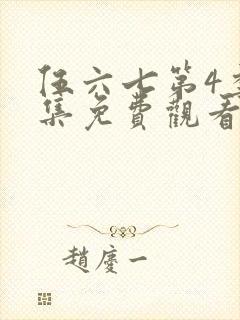 伍六七第4季
集免費觀看
趙慶一